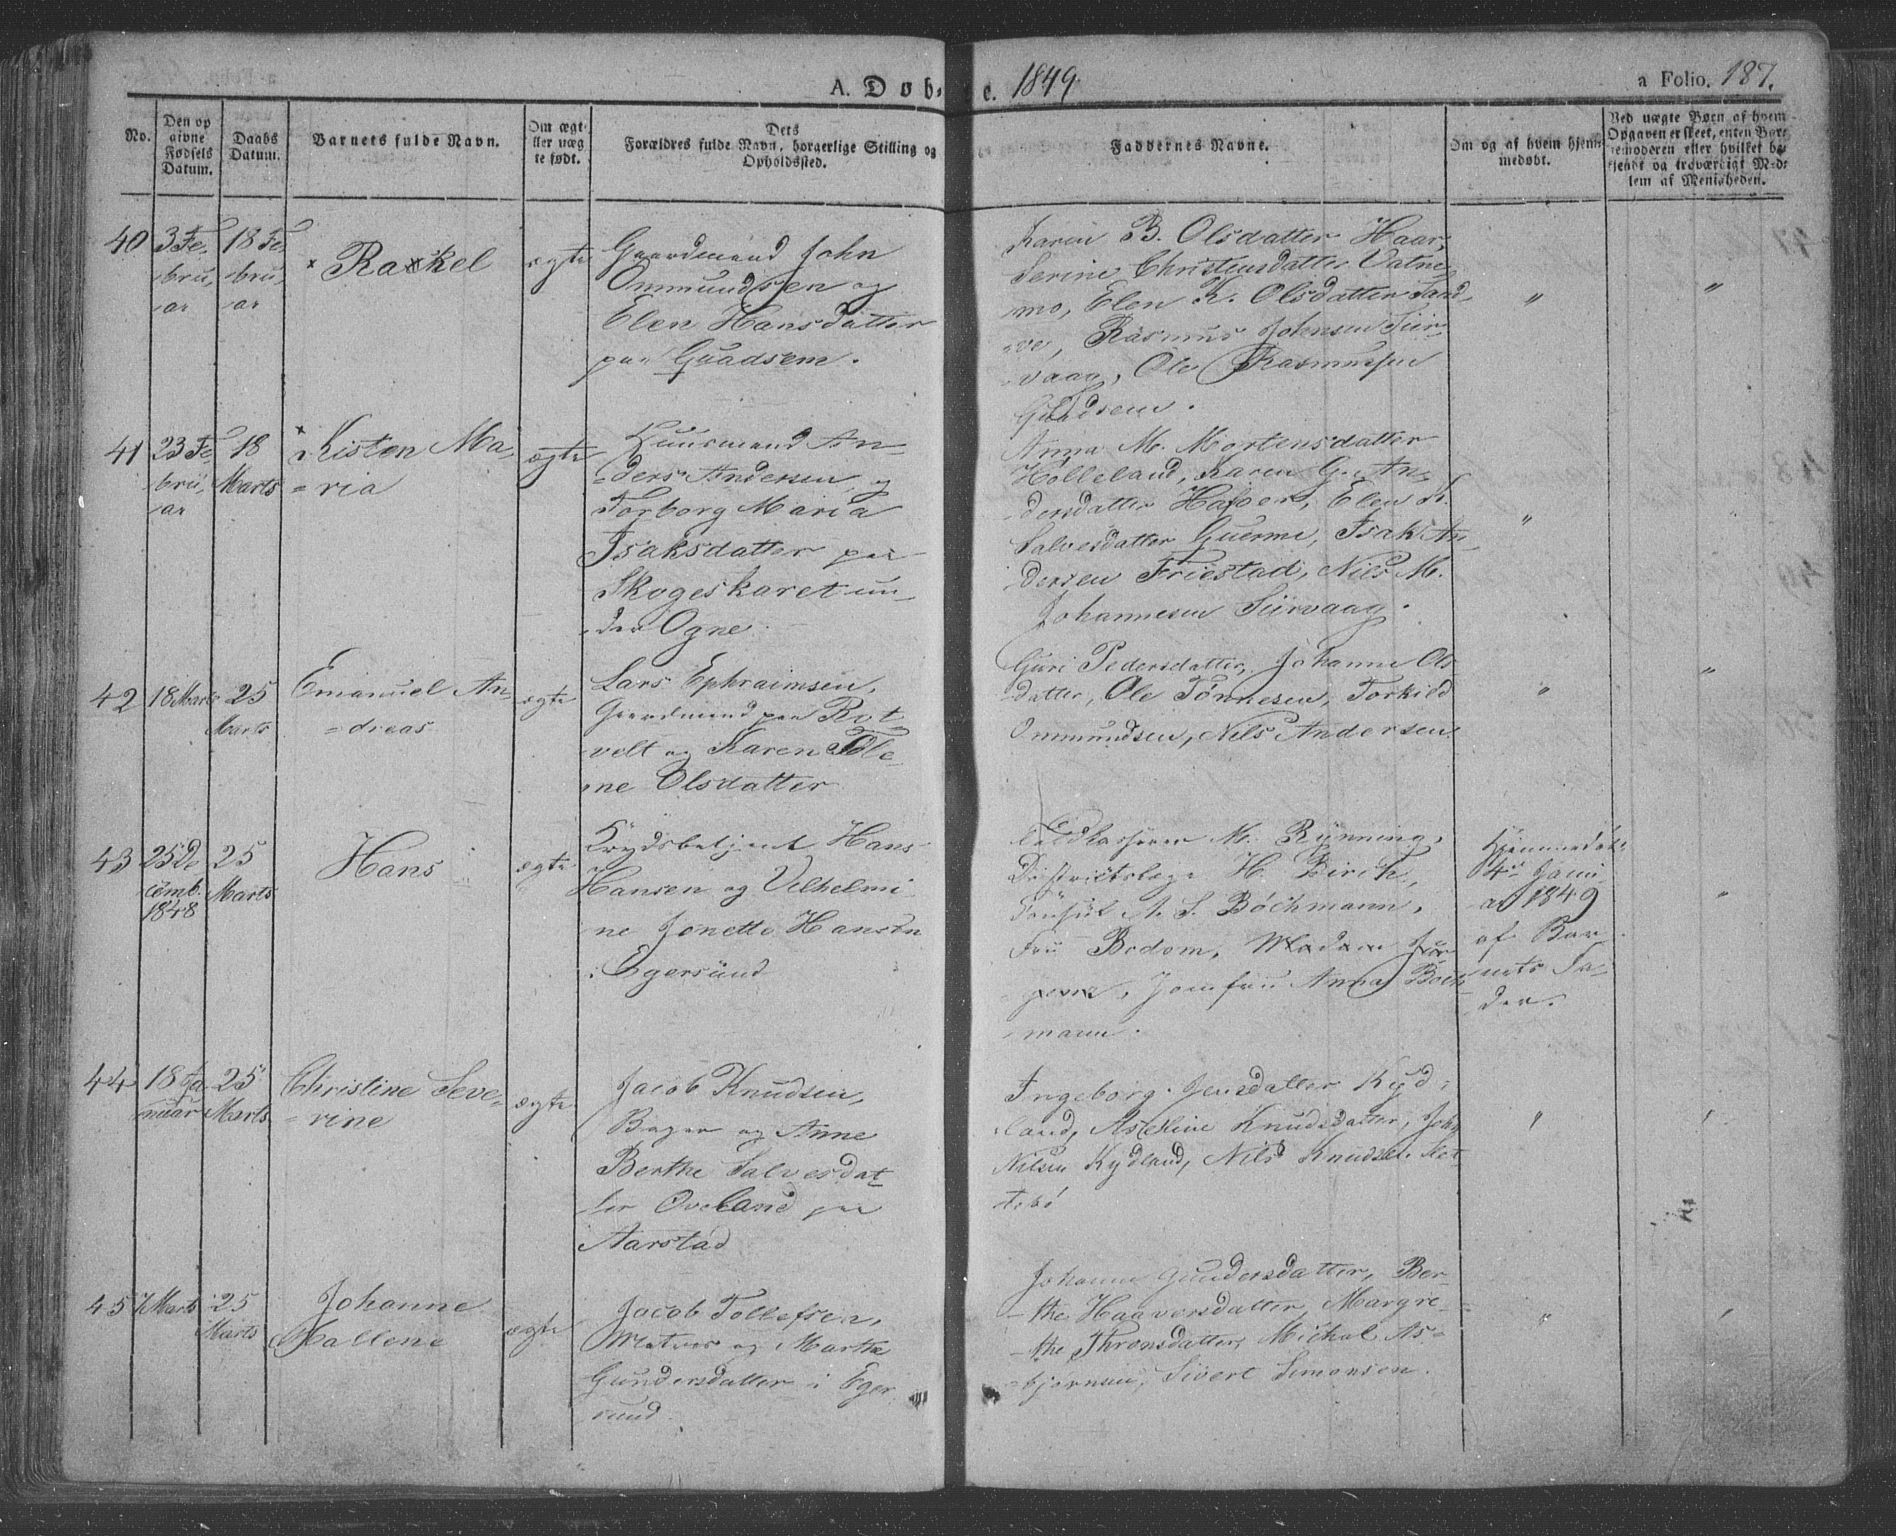 A. Døb- e. 1849
a Folio. 187.
No.
Den op
givne
Fødsels
Datum.
Daabs
Datum.
Barnets fulde Navn.
Om ægt
ller uæg
te født.
Dets
Forældres fulde Navn, borgerlige Stilling og
Opholdssted.
Faddernes Navne.
Om og af hvem hjem
medøbt.
Ved uægte Børn af hvem
Opgaven er skeet, enten Bar
nemoderen eller hvilket be
kjendt og troværdigt Med-
lem af Menigheden.
40
3 Fe,
bru,
ar
18 Fe,
bru,
ar
× Rakel
ægte
Gaardmand John
Ommundsen og
Elen Hansdatter
paa Guadsem.
Karen B. Olsdatter Haar,
Serine Christensdatter Vatne
mo, Elen K. Olsdatter Sand,
ve, Rasmus Johnsen Siir,
vaag, Ole Rasmussen
Guadsem.
"
"
41
23 Fe
bru,
ar
18
Marts
× Kisten Ma,
=ria
ægte
Huusmand An
ders Andersen og
Torborg Maria
Isaksdatter paa
Skogeskaret un,
der Ogne.
Anna M. Mortensdatter
Holleland, Karen G. An,
dersdatter Hafver, Elen K.
Salvesdatter Guerme, Isak An,
dersen Friestad, Nils M.
Johannesen Siirvaag.
"
42
18 Marts
25
Marts
Emanuel An,
=dreas
ægte
Lars Ephraimsen,
Gaardmand paa Rot,
velt og Karen Tole
ne Olsdatter
Guri Pedersdatter, Johanne Ols
datter, Ole Tønnesen, Torkild
Ommundsen, Nils Andersen
"
"
43
25 De
cemb.
1848
25
Marts
Hans
ægte
Krydsbetjent Hans
Hansen og Vilhelmi
ne Jonette Hansen
i Egersund
Toldkasserer M. Rynning,
Districtslæge H. Birch,
Konsul A. S. Bøchmann,
Fru Bodom, Madam Jør
gense, Jomfru Anna Bøch
mann.
Hjemmedøbt
4de Janu
ar 1849
af Bar
nets Fa,
der.
"
44
18 Ja
nuar
25
Marts
Christine Seve,
=rine
ægte
Jacob Knudsen,
Bager og Anne
Berthe Salvesdat
ter Oveland paa
Aarstad
Ingeborg Jensdatter Kyd,
land, Aseline Knudsdatter, John
Nilsen Kydland, Nils Knudsen Slet
tebø
"
"
45
7 Marts
25
Marts
Johanne
Mallene
ægte
Jacob Tollefsen,
Matros og Marthe
Gundersdatter i Eger
sund.
Johanne Gundersdatter, Ber
the Haaversdatter, Margre
the Thronsdatter, Michal As=
bjørnsen, Sivert Simonsen.
"
"